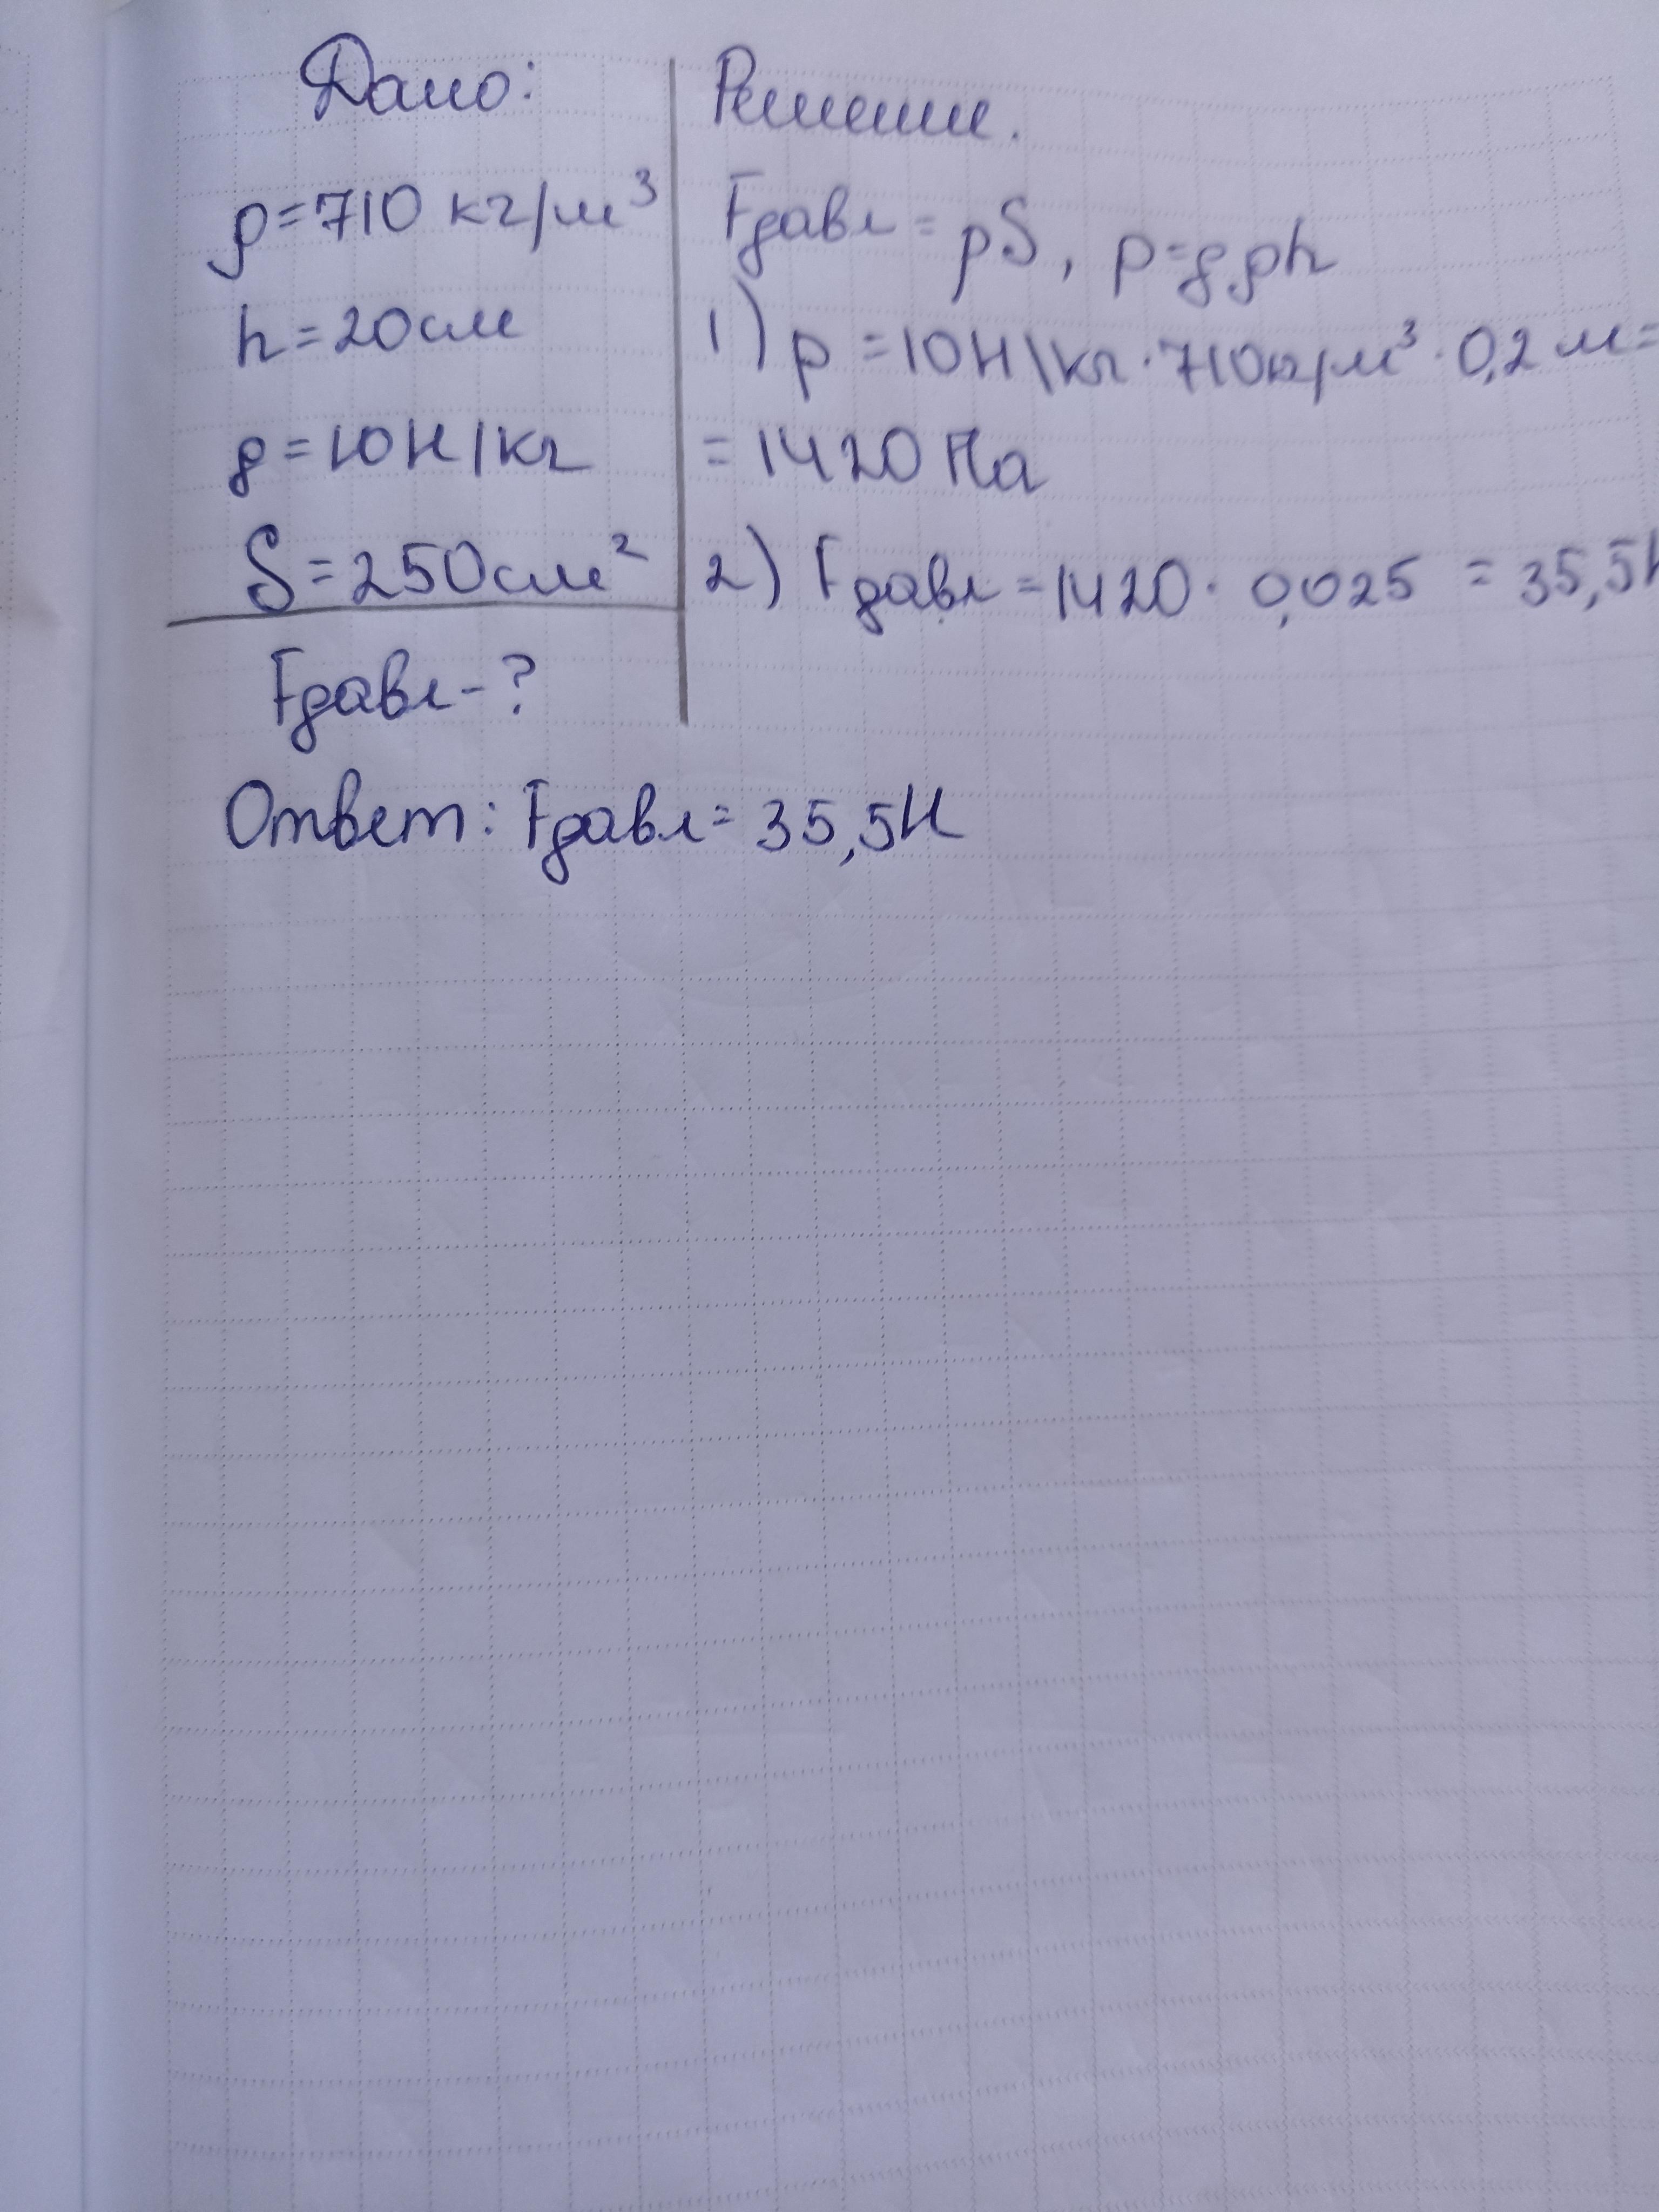 Дано:
ρ=710 кг/м³
h=20см
g=10Н/кг
S=250см²
Fдавл-?
Решение.
Fдавл=pS, p=gρh
1) p=10Н\кг·710кг/м³·0,2м=
=1420Па
2) Fдавл=1420·0,025=35,5Н
Ответ: Fдавл=35,5Н